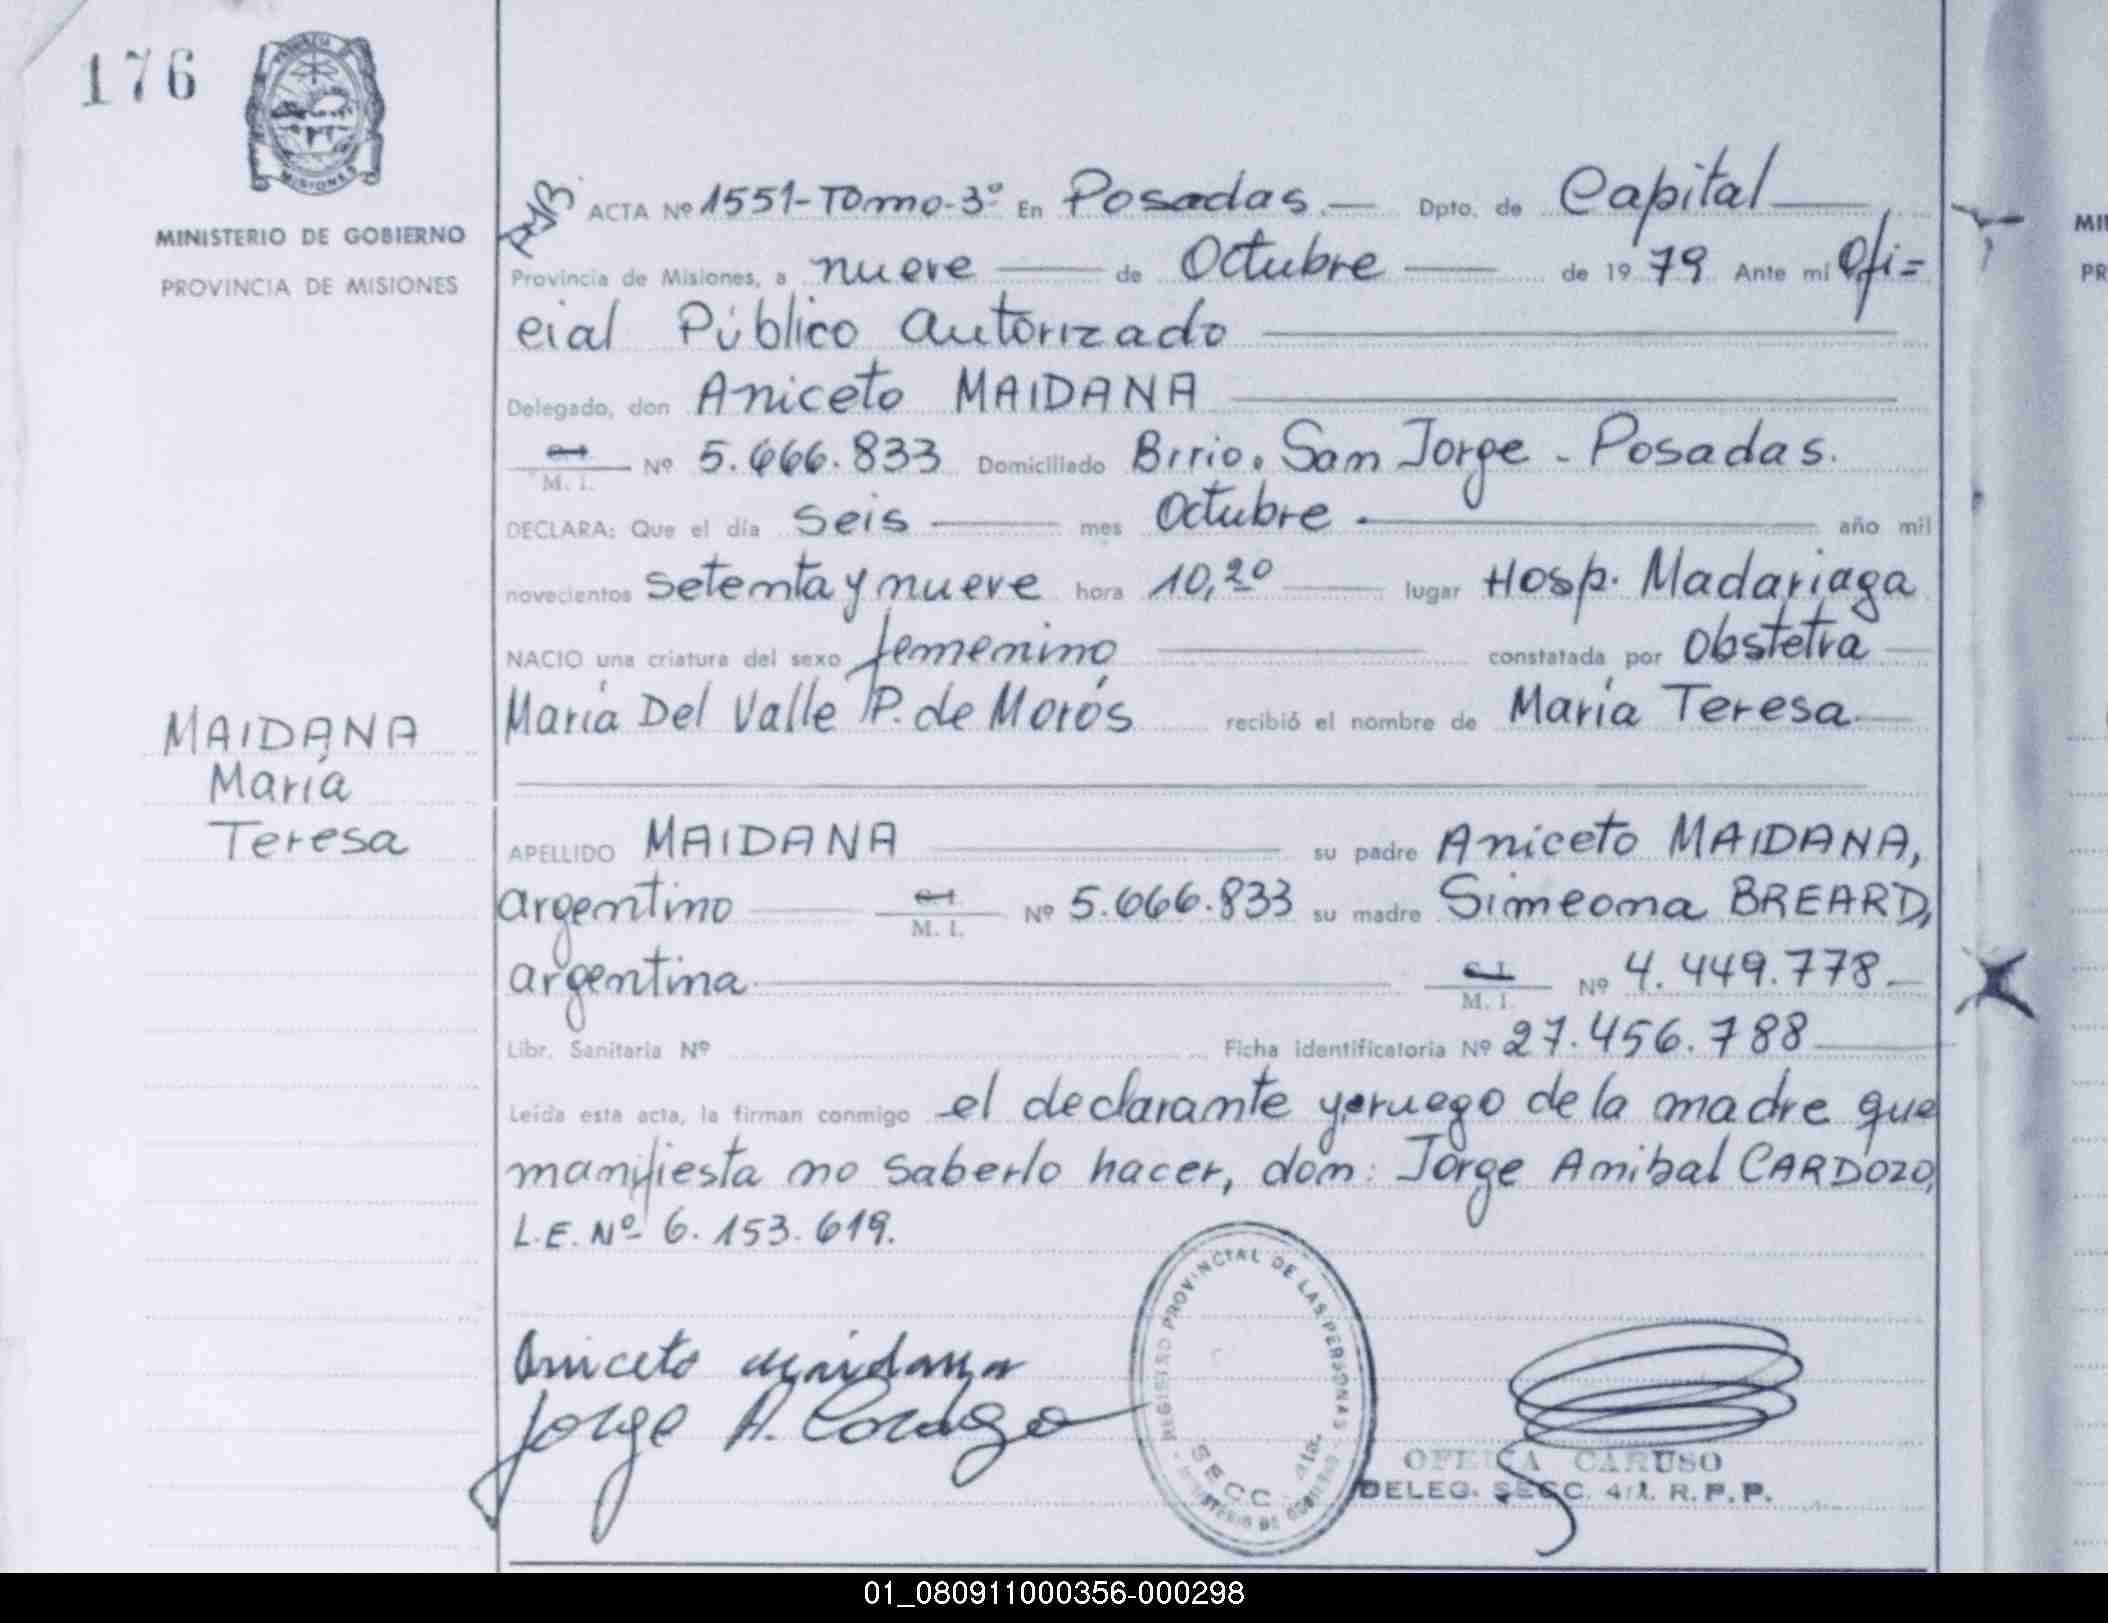 176
PROVINCIA DE
MISIONES
MINISTERIO DE GOBIERNO
PROVINCIA DE MISIONES
ACTA Nº 1551-Tomo-3º En Posadas.— Dpto. de Capital
Provincia de Misiones, a nueve de Octubre de 1979 Ante mí Ofi=
cial Público Autorizado
Delegado, don Aniceto MAIDANA
M. I. Nº 5.666.833 Domiciliado Brrio. San Jorge - Posadas.
DECLARA: Que el día seis mes Octubre año mil
novecientos setenta y nueve hora 10,20 lugar Hosp. Madariaga
NACIO una criatura del sexo femenino constatada por obstetra
María Del Valle P. de Morós recibió el nombre de María Teresa
MAIDANA
María
Teresa
APELLIDO MAIDANA su padre Aniceto MAIDANA,
argentino C.I. M. I. Nº 5.666.833 su madre Simeona BREARD,
argentina. C.I. M. I. Nº 4.449.778—
Libr. Sanitaria Nº Ficha identificatoria Nº 27.456.788
Leída esta acta, la firman conmigo el declarante y a ruego de la madre que
manifiesta no saberlo hacer, don: Jorge Anibal CARDOZO,
L.E. Nº 6.153.619.
Aniceto Maidana
Jorge A. Cardozo
REGISTRO PROVINCIAL DE LAS PERSONAS
SECC. 4ta.
MINISTERIO DE GOBIERNO
OFELIA CARUSO
DELEG. SECC. 4ta. R.P.P.
MI
PR
01_080911000356-000298